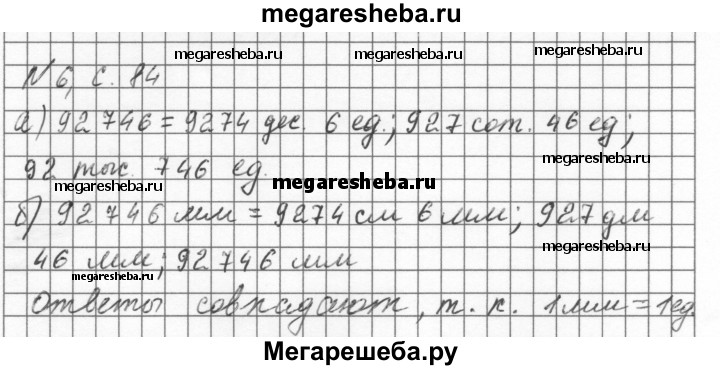 megaresheba.ru
megaresheba.ru megaresheba.ru
N 6, с. 84
а) 92 746 = 9274 дес. 6 ед.; 927 сот. 46 ед;
megaresheba.ru
92 тыс. 746 ед.
megaresheba.ru megaresheba.ru
б) 92 746 мм = 9274 см 6 мм; 927 дм
megaresheba.ru
46 мм; 92 746 мм
megaresheba.ru
ответы совпадают, т. к. 1 мм = 1 ед.
Мегарешеба.ру